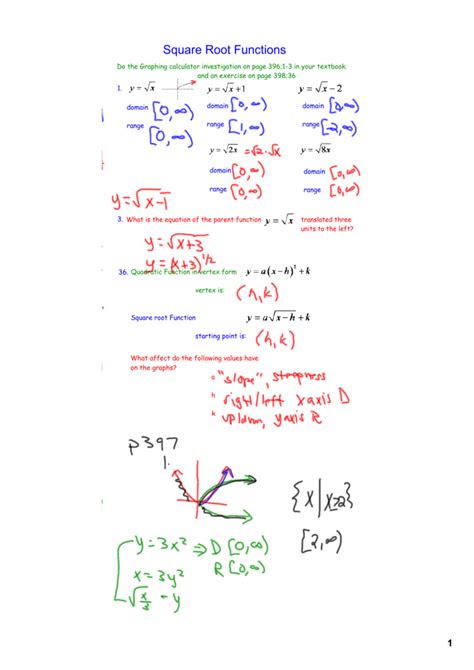 Square Root Functions
Do the Graphing calculator investigation on page 396;1-3 in your textbook.
and an exercise on page 398:36
1. y = √x    y = √x + 1    y = √x − 2
domain [0,∞)    domain [0,∞)    domain [0,∞)
range [0,∞)    range [1,∞)    range [-2,∞)
y = √2x = √2·√x    y = √8x
domain [0,∞)    domain [0,∞)
range [0,∞)    range [0,∞)
y = √x-1
3. What is the equation of the parent function y = √x translated three
units to the left?
y = √x+3
y = (x+3)^1/2
36. Quadratic Function in vertex form y = a(x−h)² + k
vertex is: (h,k)
Square root Function y = a√x−h + k
starting point is: (h,k)
What affect do the following values have
on the graphs?
a "slope", steepness
h right/left x axis D
k up/down, y axis R
p397
1.
{x|x≥2}
[2,∞)
y = 3x² ⇒ D [0,∞)
R [0,∞)
x = 3y²
√x/3 = y
1